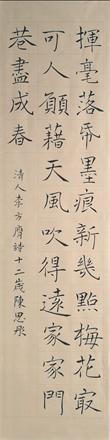 揮毫落紙墨痕新幾點梅花最
可人願藉天風吹得遠家家門
巷盡成春
清人李方膺詩十二歲陳思彤